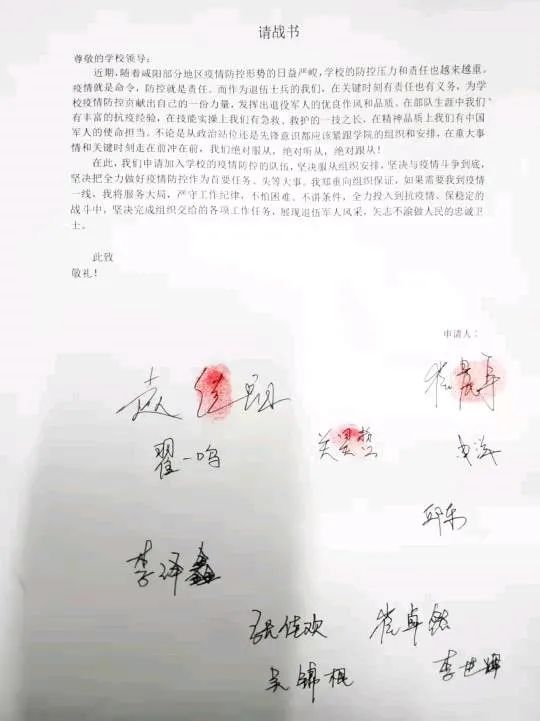 请战书
尊敬的学校领导:
近期,随着咸阳部分地区疫情防控形势的日益严峻,学校的防控压力和责任也越来越重。
疫情就是命令,防控就是责任。而作为退伍士兵的我们,在关键时刻有责任也有义务,为学
校疫情防控贡献出自己的一份力量,发挥出退役军人的优良作风和品质。在部队生涯中我们
有丰富的抗疫经验,在技能实操上我们有急救、救护的一技之长,在精神品质上我们有中国
军人的使命担当。不论是从政治站位还是先锋意识都应该紧跟学院的组织和安排,在重大事
情和关键时刻走在前冲在前,我们绝对服从,绝对听从,绝对跟从!
在此,我们申请加入学校的疫情防控的队伍,坚决服从组织安排,坚决与疫情斗争到底,
坚决把全力做好疫情防控作为首要任务、头等大事。我郑重向组织保证,如果需要我到疫情
一线,我将服务大局,严守工作纪律,不怕困难、不讲条件,全力投入到抗疫情、保稳定的
战斗中,坚决完成组织交给的各项工作任务,展现退伍军人风采,矢志不渝做人民的忠诚卫
士。
此致
敬礼!
申请人:
翟一鸣
邱东
李泽鑫
张佳欢
吴锦棍
李世辉